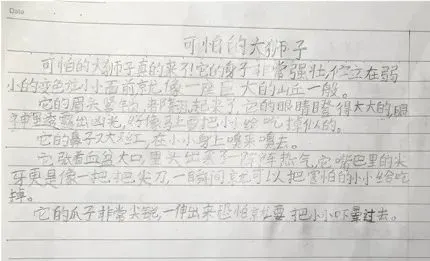 Date
可怕的大狮子
可怕的大狮子真的来了!它的身子非常强壮,伫立在弱
小的变色龙小小面前就像一座巨大的山丘一般。
它的眉头紧,都隆起来了它的眼睛瞪得大大的,眼
神里透露出凶光,好像马上要把小小给吃掉似的。
它的鼻子又大又红,在小小身上嗅来嗅去。
它张着血盆大口,里头出来了一阵阵热气,它嘴巴里的尖
牙更是像一把把尖刀,一瞬间就可以把害怕的小小给吃
掉。
它的爪子非常尖锐,一伸出来恐怕就要把小小吓晕过去。